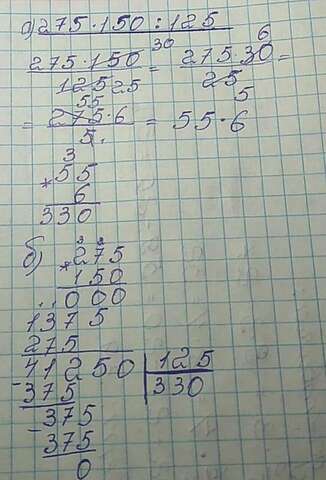 а) 275·150 : 125
275·150 / 125 = 275·30 / 25 =
30 25 6 5
= 275·6 / 5 = 55·6
55
3
* 55
6
330
б) 275
* 150
000
1375
275
41250 | 125
- 375 330
- 375
375
0